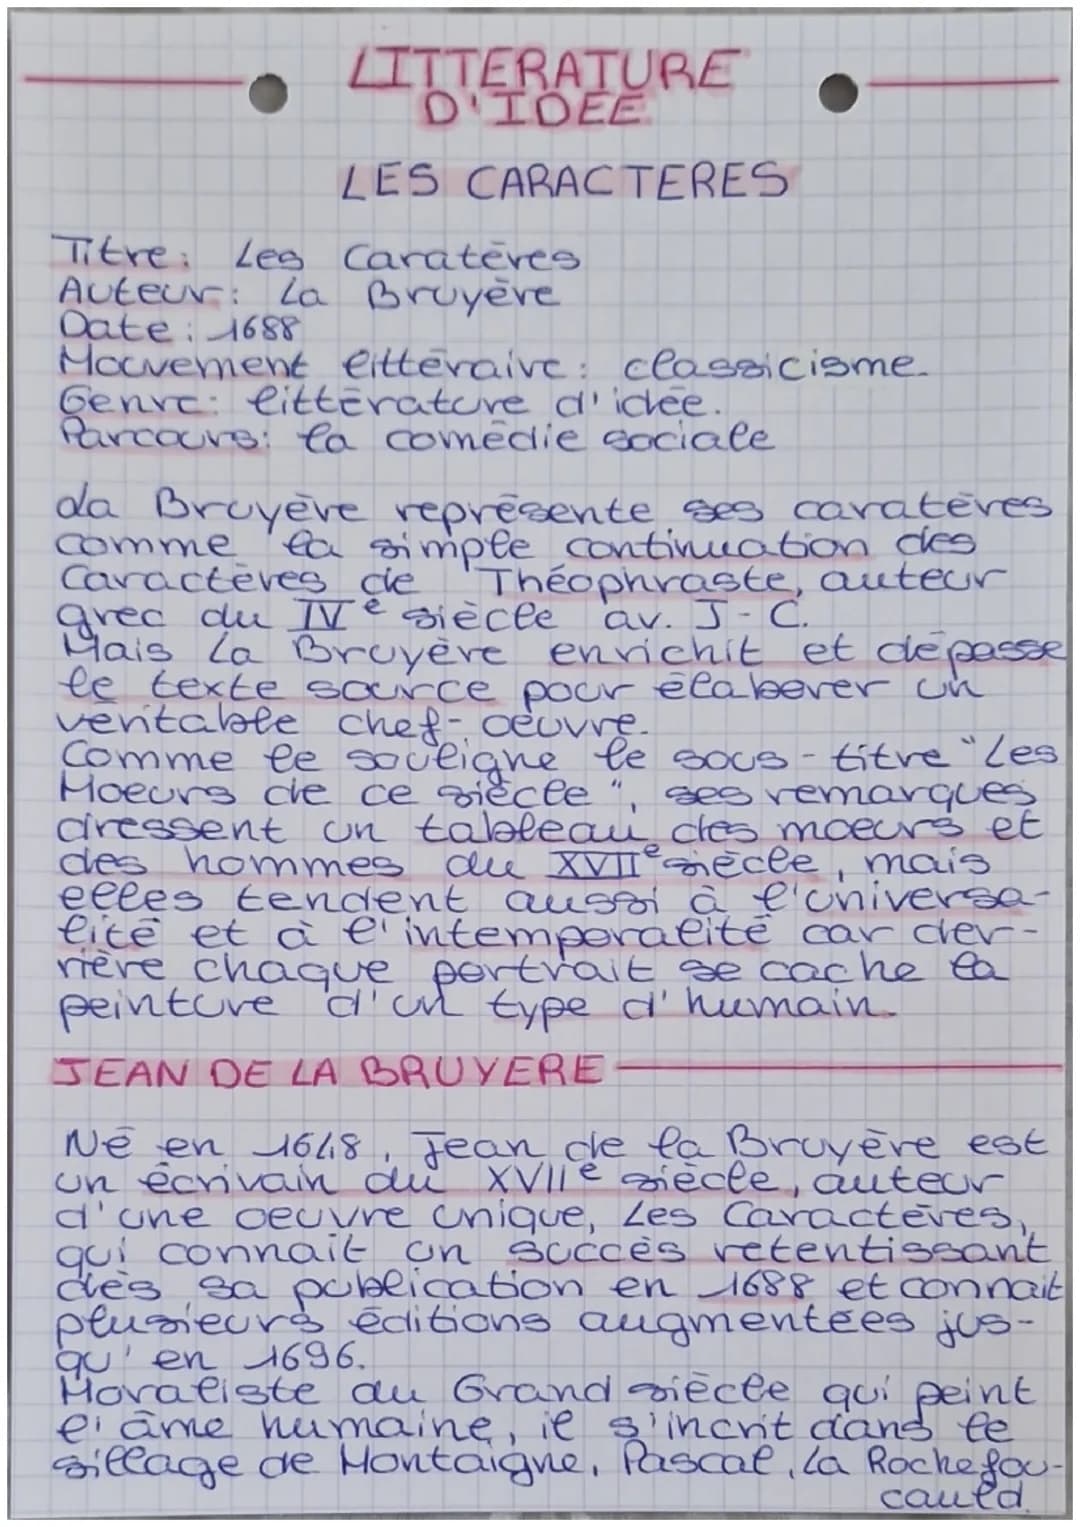 LITTERATURE
D'IDEE
LES CARACTERES
Titre: Les Caratères
Auteur: La Bruyère
Date: 1688
Mouvement littéraire: classicisme.
Genre: littérature d'idée.
Parcours: la comédie sociale
La Bruyère représente ses caratères
comme la simple continuation des
Caractères de Théophraste, auteur
grec du IVe siècle av. J-C.
Mais La Bruyère enrichit et dépasse
le texte source pour élaborer un
véritable chef-oeuvre.
Comme le souligne le sous-titre "Les
Moeurs de ce siècle", ses remarques
dressent un tableau des moeurs et
des hommes du XVIIe siècle, mais
elles tendent aussi à l'universa-
lité et à l'intemporalité car der-
rière chaque portrait se cache la
peinture d'un type d'humain.
JEAN DE LA BRUYERE
Né en 1648, Jean de la Bruyère est
un écrivain du XVIIe siècle, auteur
d'une oeuvre unique, Les Caractères,
qui connait un succès retentissant
dès sa publication en 1688 et connait
plusieurs éditions augmentées jus-
qu'en 1696.
Moraliste du Grand siècle qui peint
l'âme humaine, il s'incrit dans le
sillage de Montaigne, Pascal, La Rochefou-
cauld.